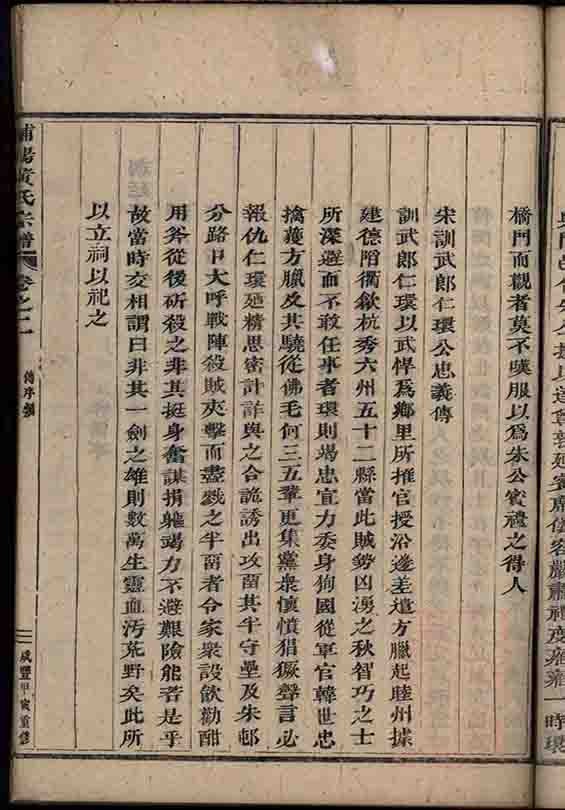 橋門而觀者莫不嘆服以爲朱公賓禮之得人
宋訓武郎仁環公忠義傳
訓武郎仁環以武悍爲鄉里所推官授沿邊差遣方臘起睦州據
建德陷衢歙杭秀六州五十二縣當此賊勢凶湧之秋智巧之士
所深避而不敢任事者環則竭忠宣力委身狥國從軍官韓世忠
擒䕶方臘及其驍從佛毛何三五羣更集黨衆懷憤猖獗聲言必
報仇仁環廼精思密計詳與之合詭誘出攻菑其半守壘及朱邨
分路口大呼戰陣殺賊夾擊而盡戮之半菑者令家衆設飲勸酣
用斧從後斫殺之非其挺身奮謀捐軀竭力不避艱險能若是乎
故當時交相謂曰非其一劍之雄則數萬生靈血汚荒野矣此所
以立祠以祀之
浦陽黃氏宗譜
卷之二
傳序類
咸豐甲寅重修